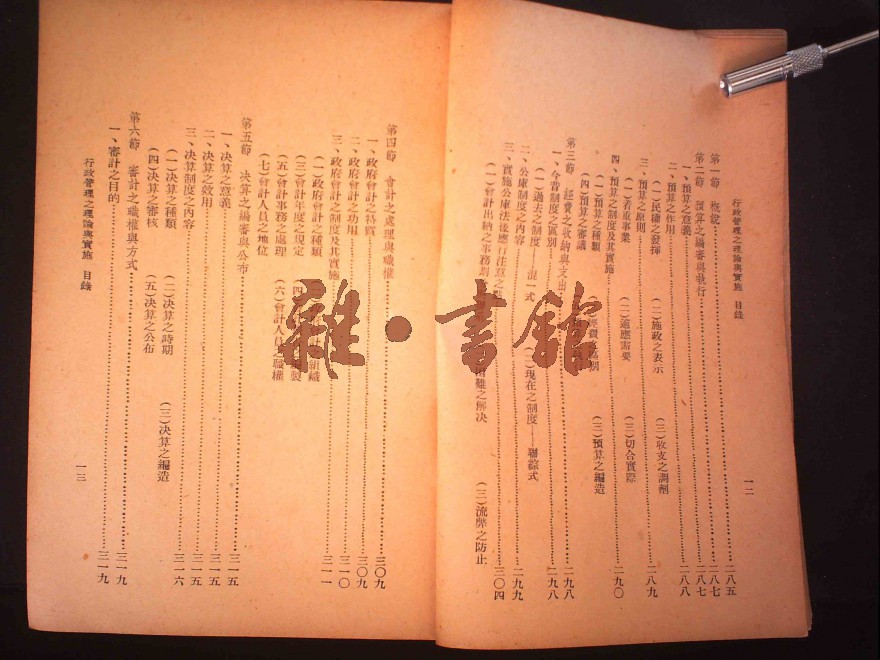 行政管理之理論與實施 目錄
一二
第一節 概說……二八五
第二節 預算之編審與執行……二八七
一、預算之意義……二八七
二、預算之作用……二八八
(一)民權之發揮 (二)施政之表示 (三)收支之調劑
三、預算之原則……二八九
(一)着重事業 (二)適應需要 (三)切合實際
四、預算之制度及其實施……二九〇
(一)預算之種類 (三)預算之編造
(四)預算之審議
第三節 經費之收納與支出……二九八
一、今昔制度之區別……二九八
(一)過去之制度——混一式 (二)現在之制度——聯綜式
二、公庫制度之內容……二九九
三、實施公庫法後應行注意之……三〇四
(一)會計出納之事務 難之解決 (三)流弊之防止
第四節 會計之處理與職權……三〇九
一、政府會計之特質……三〇九
二、政府會計之功用……三一〇
三、政府會計之制度及其實施……三一一
(一)政府會計之種類 組織
(三)會計年度之規定 (四) 製
(五)會計事務之處理 (六)會計人員之職權
(七)會計人員之地位
第五節 決算之編審與公布……三一五
一、決算之意義……三一五
二、決算之效用……三一五
三、決算制度之內容……三一六
(一)決算之種類 (二)決算之時期 (三)決算之編造
(四)決算之審核 (五)決算之公布
第六節 審計之職權與方式……三一九
一、審計之目的……三一九
行政管理之理論與實施 目錄
一三
雜·書館